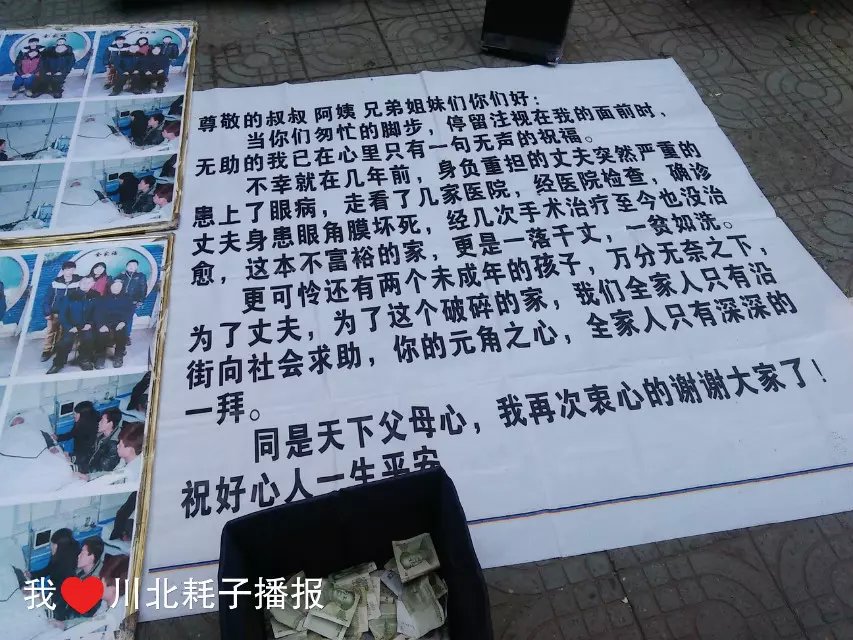 尊敬的叔叔 阿姨 兄弟姐妹们你们好：
当你们匆忙的脚步，停留注视在我的面前时，
无助的我已在心里只有一句无声的祝福。
不幸就在几年前，身负重担的丈夫突然严重的
患上了眼病，走看了几家医院，经医院检查，确诊
丈夫身患眼角膜坏死，经几次手术治疗至今也没治
愈，这本不富裕的家，更是一落千丈，一贫如洗。
更可怜还有两个未成年的孩子，万分无奈之下，
为了丈夫，为了这个破碎的家，我们全家人只有沿
街向社会求助，你的元角之心，全家人只有深深的
一拜。
同是天下父母心，我再次衷心的谢谢大家了！
祝好心人一生平安
全家福
我❤川北耗子播报